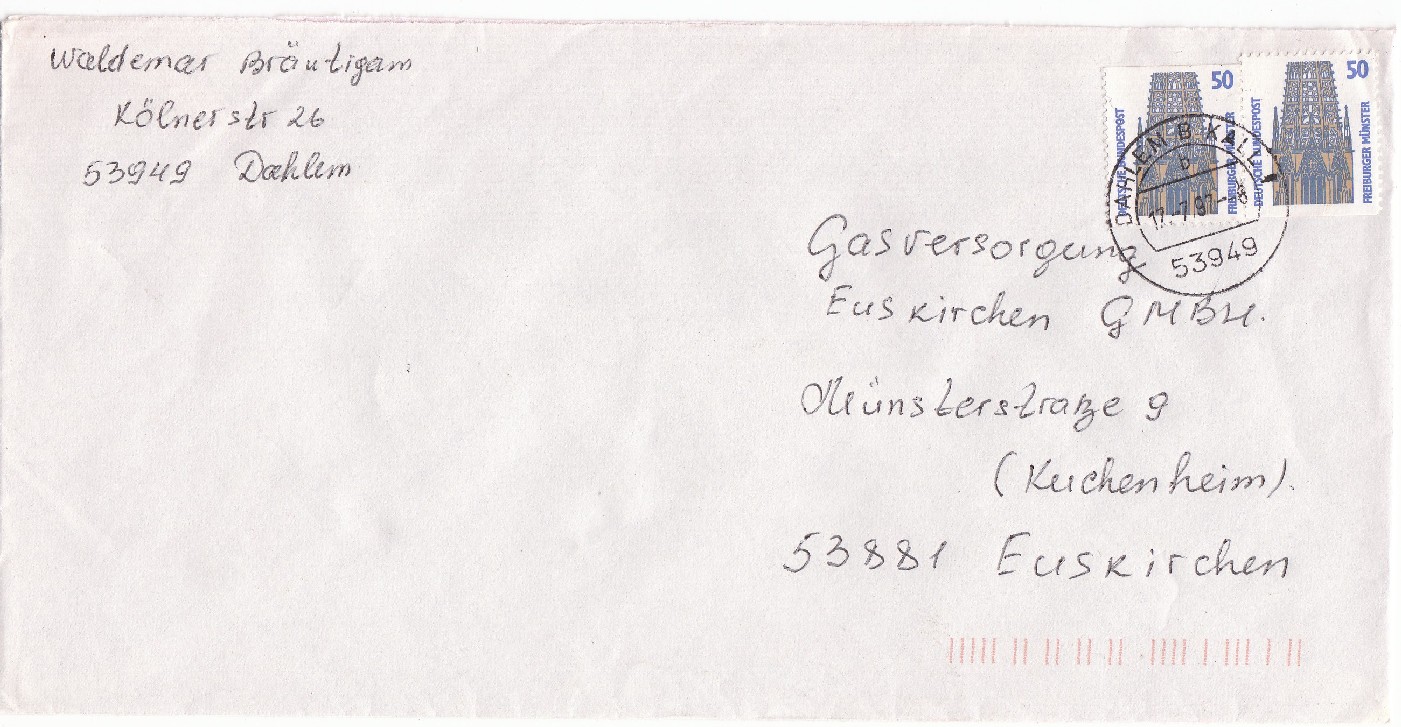 Waldemar Bräutigam
Kölnerstr 26
53949 Dahlem
50
DEUTSCHE BUNDESPOST
FREIBURGER MÜNSTER
50
DEUTSCHE BUNDESPOST
FREIBURGER MÜNSTER
DAHLEM B KALL
b
17.-7.97-
53949
Gasversorgung
Euskirchen GMBH.
Münsterstraße 9
(Kuchenheim).
53881 Euskirchen